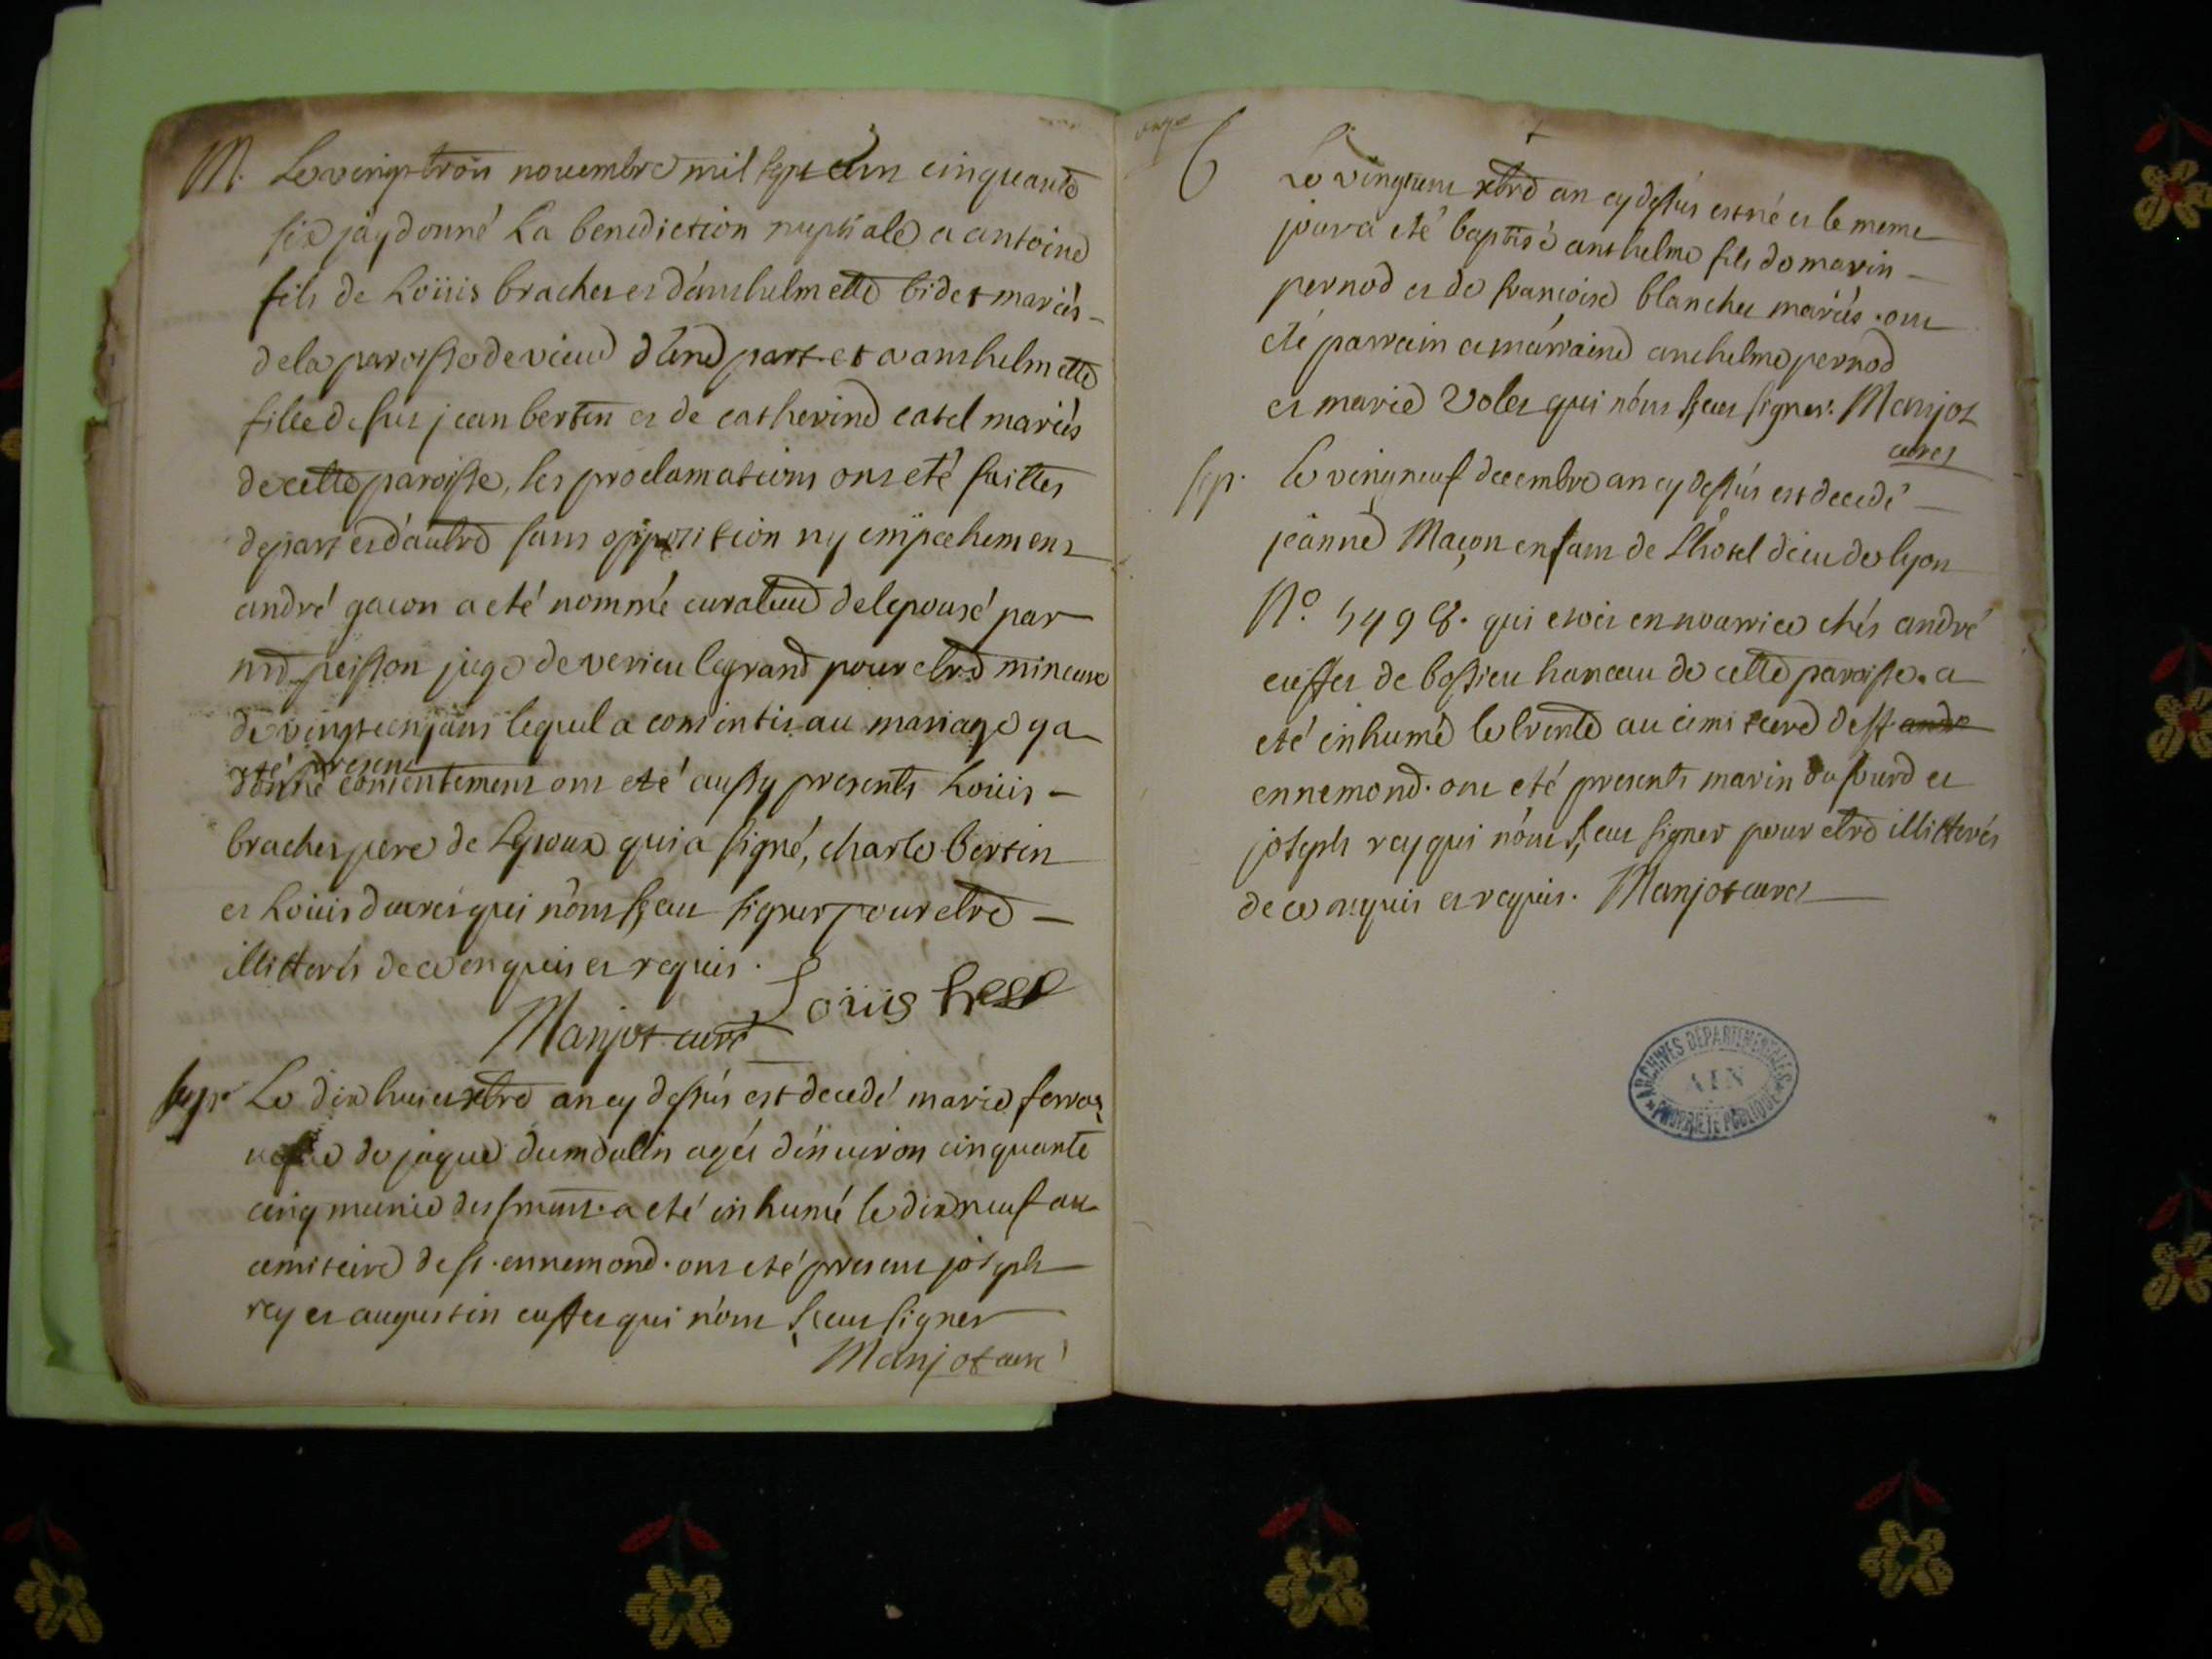 M. Le vingt trois novembre mil sept cent cinquante
six j'ay donné La benediction nuptiale a antoine
fils de Loüis brachet et d'anthelmette bidet mariés
de la paroisse de vieud d'une part et a anthelmette
fille de fut jean bertin et de catherine catel mariés
de cette paroisse, les proclamations ont eté faittes
de part et d'autre sans opposition ny empechement
andré gacon a eté nommé curateur de lepouse par
mr peisson juge de verieu le grand pour etre mineure
de vingt cinq ans lequel a consenti au mariage y a
été present
donné consentement ont eté aussy presents Loüis
brachet pere de Lepoux qui a signé, charle bertin
et Loüis ducret qui n'ont sceu signer pour etre
illitterés de ce enquis et requis.
Loüis
Manjot curé
sep. Le dix huit xbre an cy dessus est decedé marie ferra
vefve de jaque dumdalin agés d'environ cinquante
cinq munie des srments. a eté inhumé le dix neuf au
cemiteire de st. ennemond. ont eté present joseph
rey et augustin cusset qui n'ont sceu signer
Manjot curé
B Le vingt xbre an cy dessus est né et le meme
jour a eté baptisé anthelme fils de marin
pernod et de francoise blanchet mariés. ont
eté parrain et marraine anthelme pernod
et marie Volet qui n'ont sceu signer. Manjot
curé
sep. Le vingt neuf decembre an cy dessus est decedé
jeanne Maçon enfant de L'hotel dieu de lyon
No. 5498. qui etoit en nourrice chés andré
cusset de bossieu hameau de cette paroisse. a
eté inhumé le trente au cimiteere de st
ennemond. ont eté presents marin dufourd et
joseph rey qui n'ont sceu signer pour etre illitterés
de ce enquis et requis. Manjot curé
ARCHIVES DEPARTEMENTALES
AIN
PROPRIETE PUBLIQUE